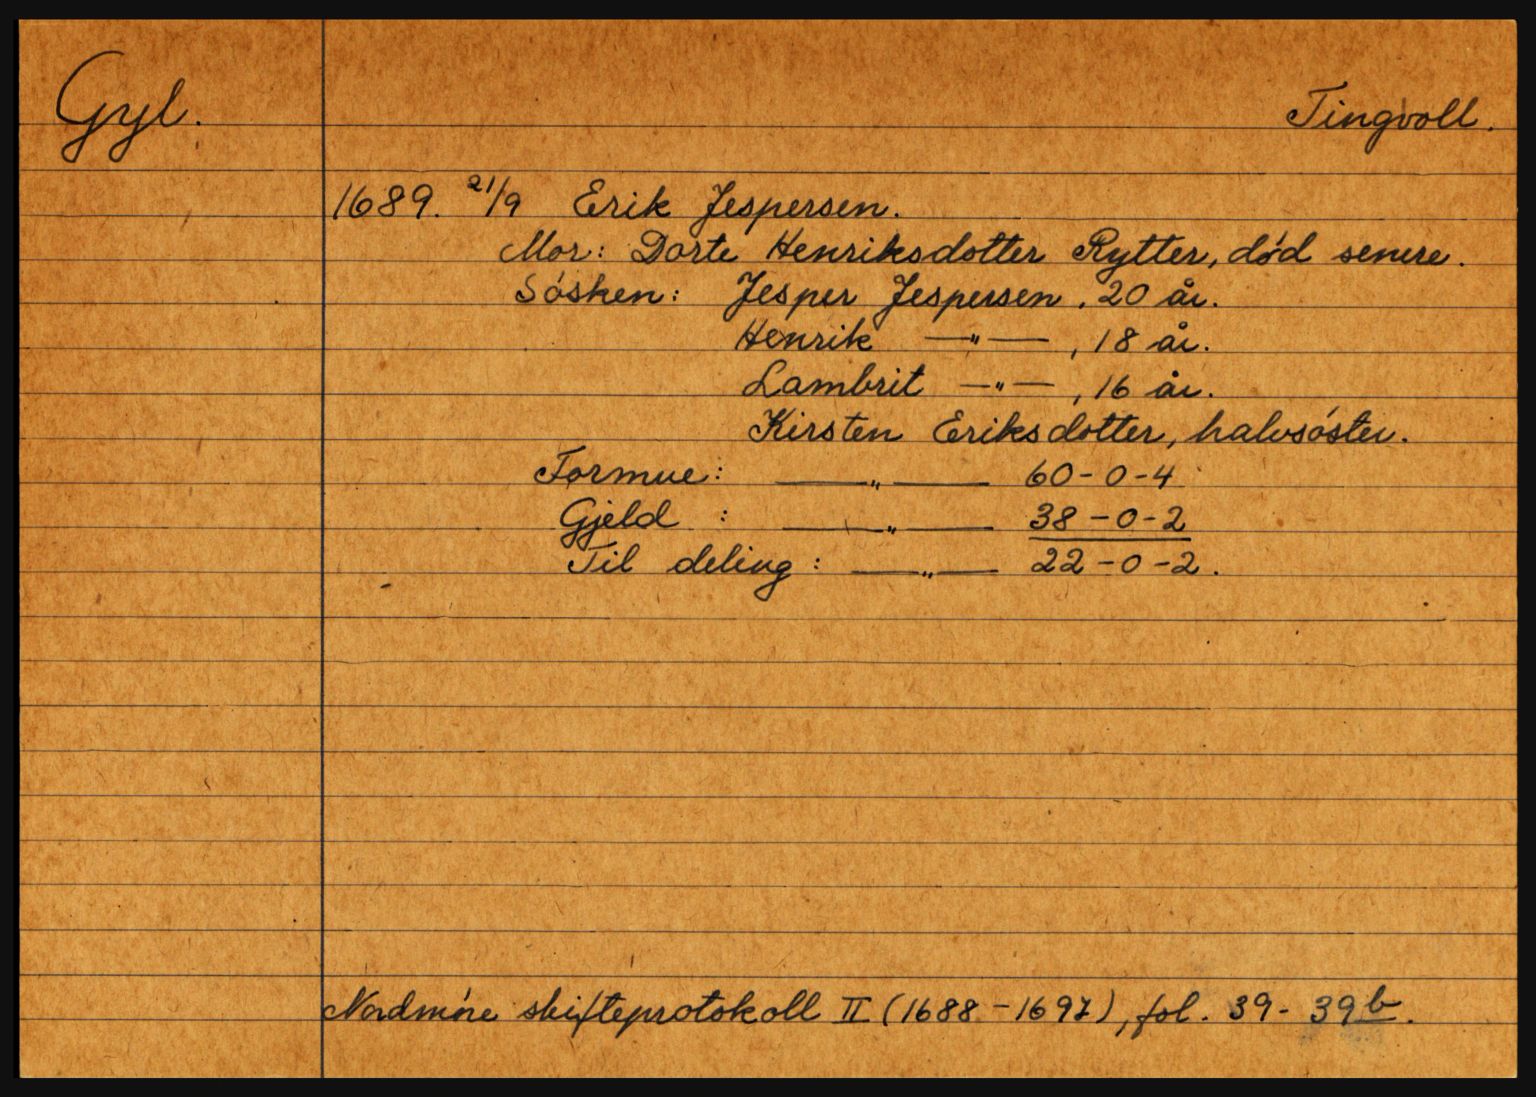 Gyl.
Tingvoll.
1689. 21/9 Erik Jespersen.
Mor: Dorte Henriksdotter Rytter, død senere.
Søsken: Jesper Jespersen, 20 år.
Henrik —"—, 18 år.
Lambrit —"—, 16 år.
Kirsten Eriksdotter, halvsøster.
Formue: —"— 60-0-4
Gjeld : —"— 38-0-2
Til deling: —"— 22-0-2.
Nordmøre skifteprotokoll II (1688-1697), fol. 39-39b.